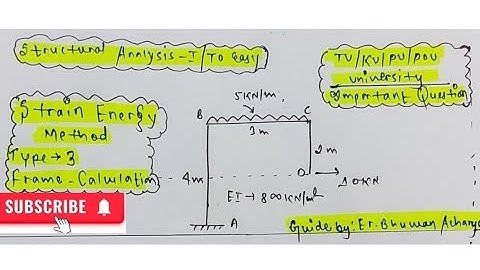 Structural Analysis-I/To easy
TU/KU/PU/POU
university
Important Question
Strain Energy
Method
Type→3
Frame-Calculation
SUBSCRIBE
5KN/m
B
C
3m
2m
D
10KN
4m
EI→800KN/m²
A
Guide by: Er. Bhuwan Acharya